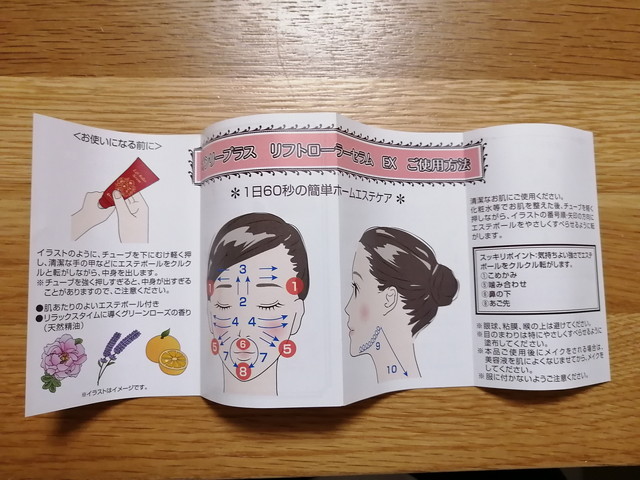 <お使いになる前に>
イラストのように、チューブを下にむけ軽く押
し、清潔な手の甲などにエステボールをクルク
ルと転がしながら、中身を出します。
※チューブを強く押しすぎると、中身が出すぎる
ことがありますので、ご注意ください。
●肌あたりのよいエステボール付き
●リラックスタイムに導くグリーンローズの香り
(天然精油)
※イラストはイメージです。
ープラス リフトローラーセラム EX ご使用方法
＊1日60秒の簡単ホームエステケア＊
3
1
1
2
4
4
5
6
5
7
7
8
9
10
清潔なお肌にご使用ください。
化粧水等でお肌を整えた後、チューブを軽く
押しながら、イラストの番号順・矢印の方向に
エステボールをやさしくすべらせるように転
がします。
スッキリポイント:気持ちよい強さでエステ
ボールをクルクル転がします。
①こめかみ
⑤噛み合わせ
⑥鼻の下
⑧あご先
※眼球、粘膜、喉の上は避けてください。
※目のまわりは特にやさしくすべらせるように
塗布してください。
※本品ご使用後にメイクをされる場合は、
美容液を肌によくなじませてから、メイクを
してください。
※服に付かないようご注意ください。